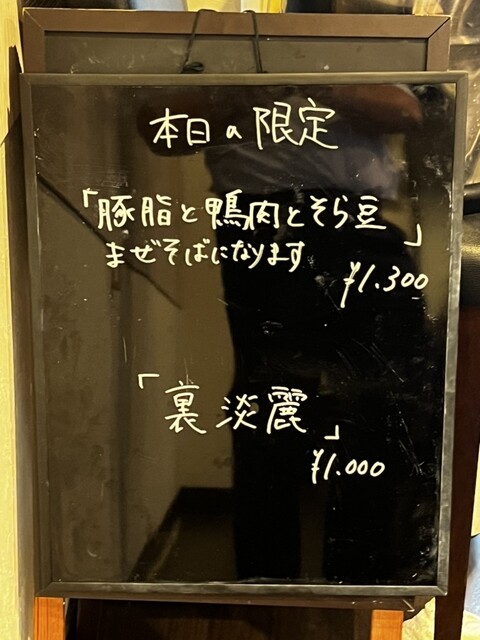 本日の限定
「豚脂と鴨肉とそら豆」
まぜそばになります
¥1.300
「裏淡麗」
¥1.000